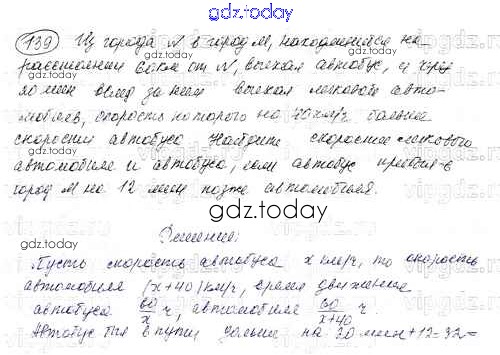 gdz.today
(139) Из города N в город М, находящийся на
расстоянии 60км от N, выехал автобус, и через
20 мин вслед за ним выехал легковой авто-
мобиль, скорость которого на 40 км/ч больше
скорости автобуса. Найдите скорости легкового
автомобиля и автобуса, если автобус прибыл в
город М на 12 мин позже автомобиля.
gdz.today
Решение:
Пусть скорость автобуса x км/ч, то скорость
автомобиля (x+40) км/ч, время движения
автобуса 60/x ч, автомобиля 60/x+40 ч.
Автобус был в пути дольше на 20 мин+12=32=
gdz.today